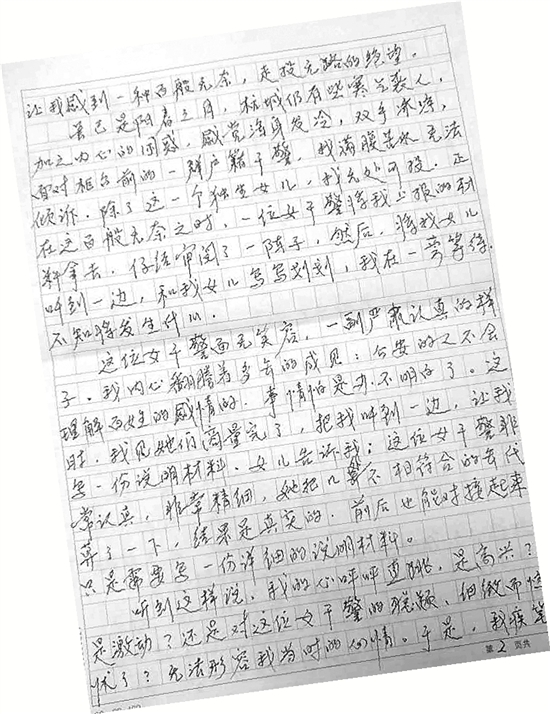 让我感到一种百般无奈，走投无路的绝望。
首已是阳春之月，杭城仍有些寒气袭人，
加之内心的困惑，感觉浑身发冷，双手冰冻，
面对柜台前的一群户籍干警，我满腹苦水无法
倾诉。除了这一个独生女儿，我无处可投。正
在这百般无奈之时，一位女干警将我上报的材
料拿去，仔细审阅了一阵子，然后，将我女儿
叫到一边，和我女儿写写划划，我在一旁等待，
不知将发生什么。
这位女干警面无笑容，一副严肃认真的样
子。我内心翻腾着多年的成见：公安的人不会
理解百姓的感情的。事情怕是办不明白了。这
时，我见她们商量完了，把我叫到一边，让我
写一份说明材料。女儿告诉我：这位女干警非
常认真，非常精细，她把几个不相符合的年代
算了一下，结果是真实的。前后也能对接起来
只是需要写一份详细的说明材料。
听到这样说，我的心呼呼直跳，是高兴？
是激动？还是对这位女干警的 细微而
了？无法形容我当时的心情。于是，我疾笔
第2页共